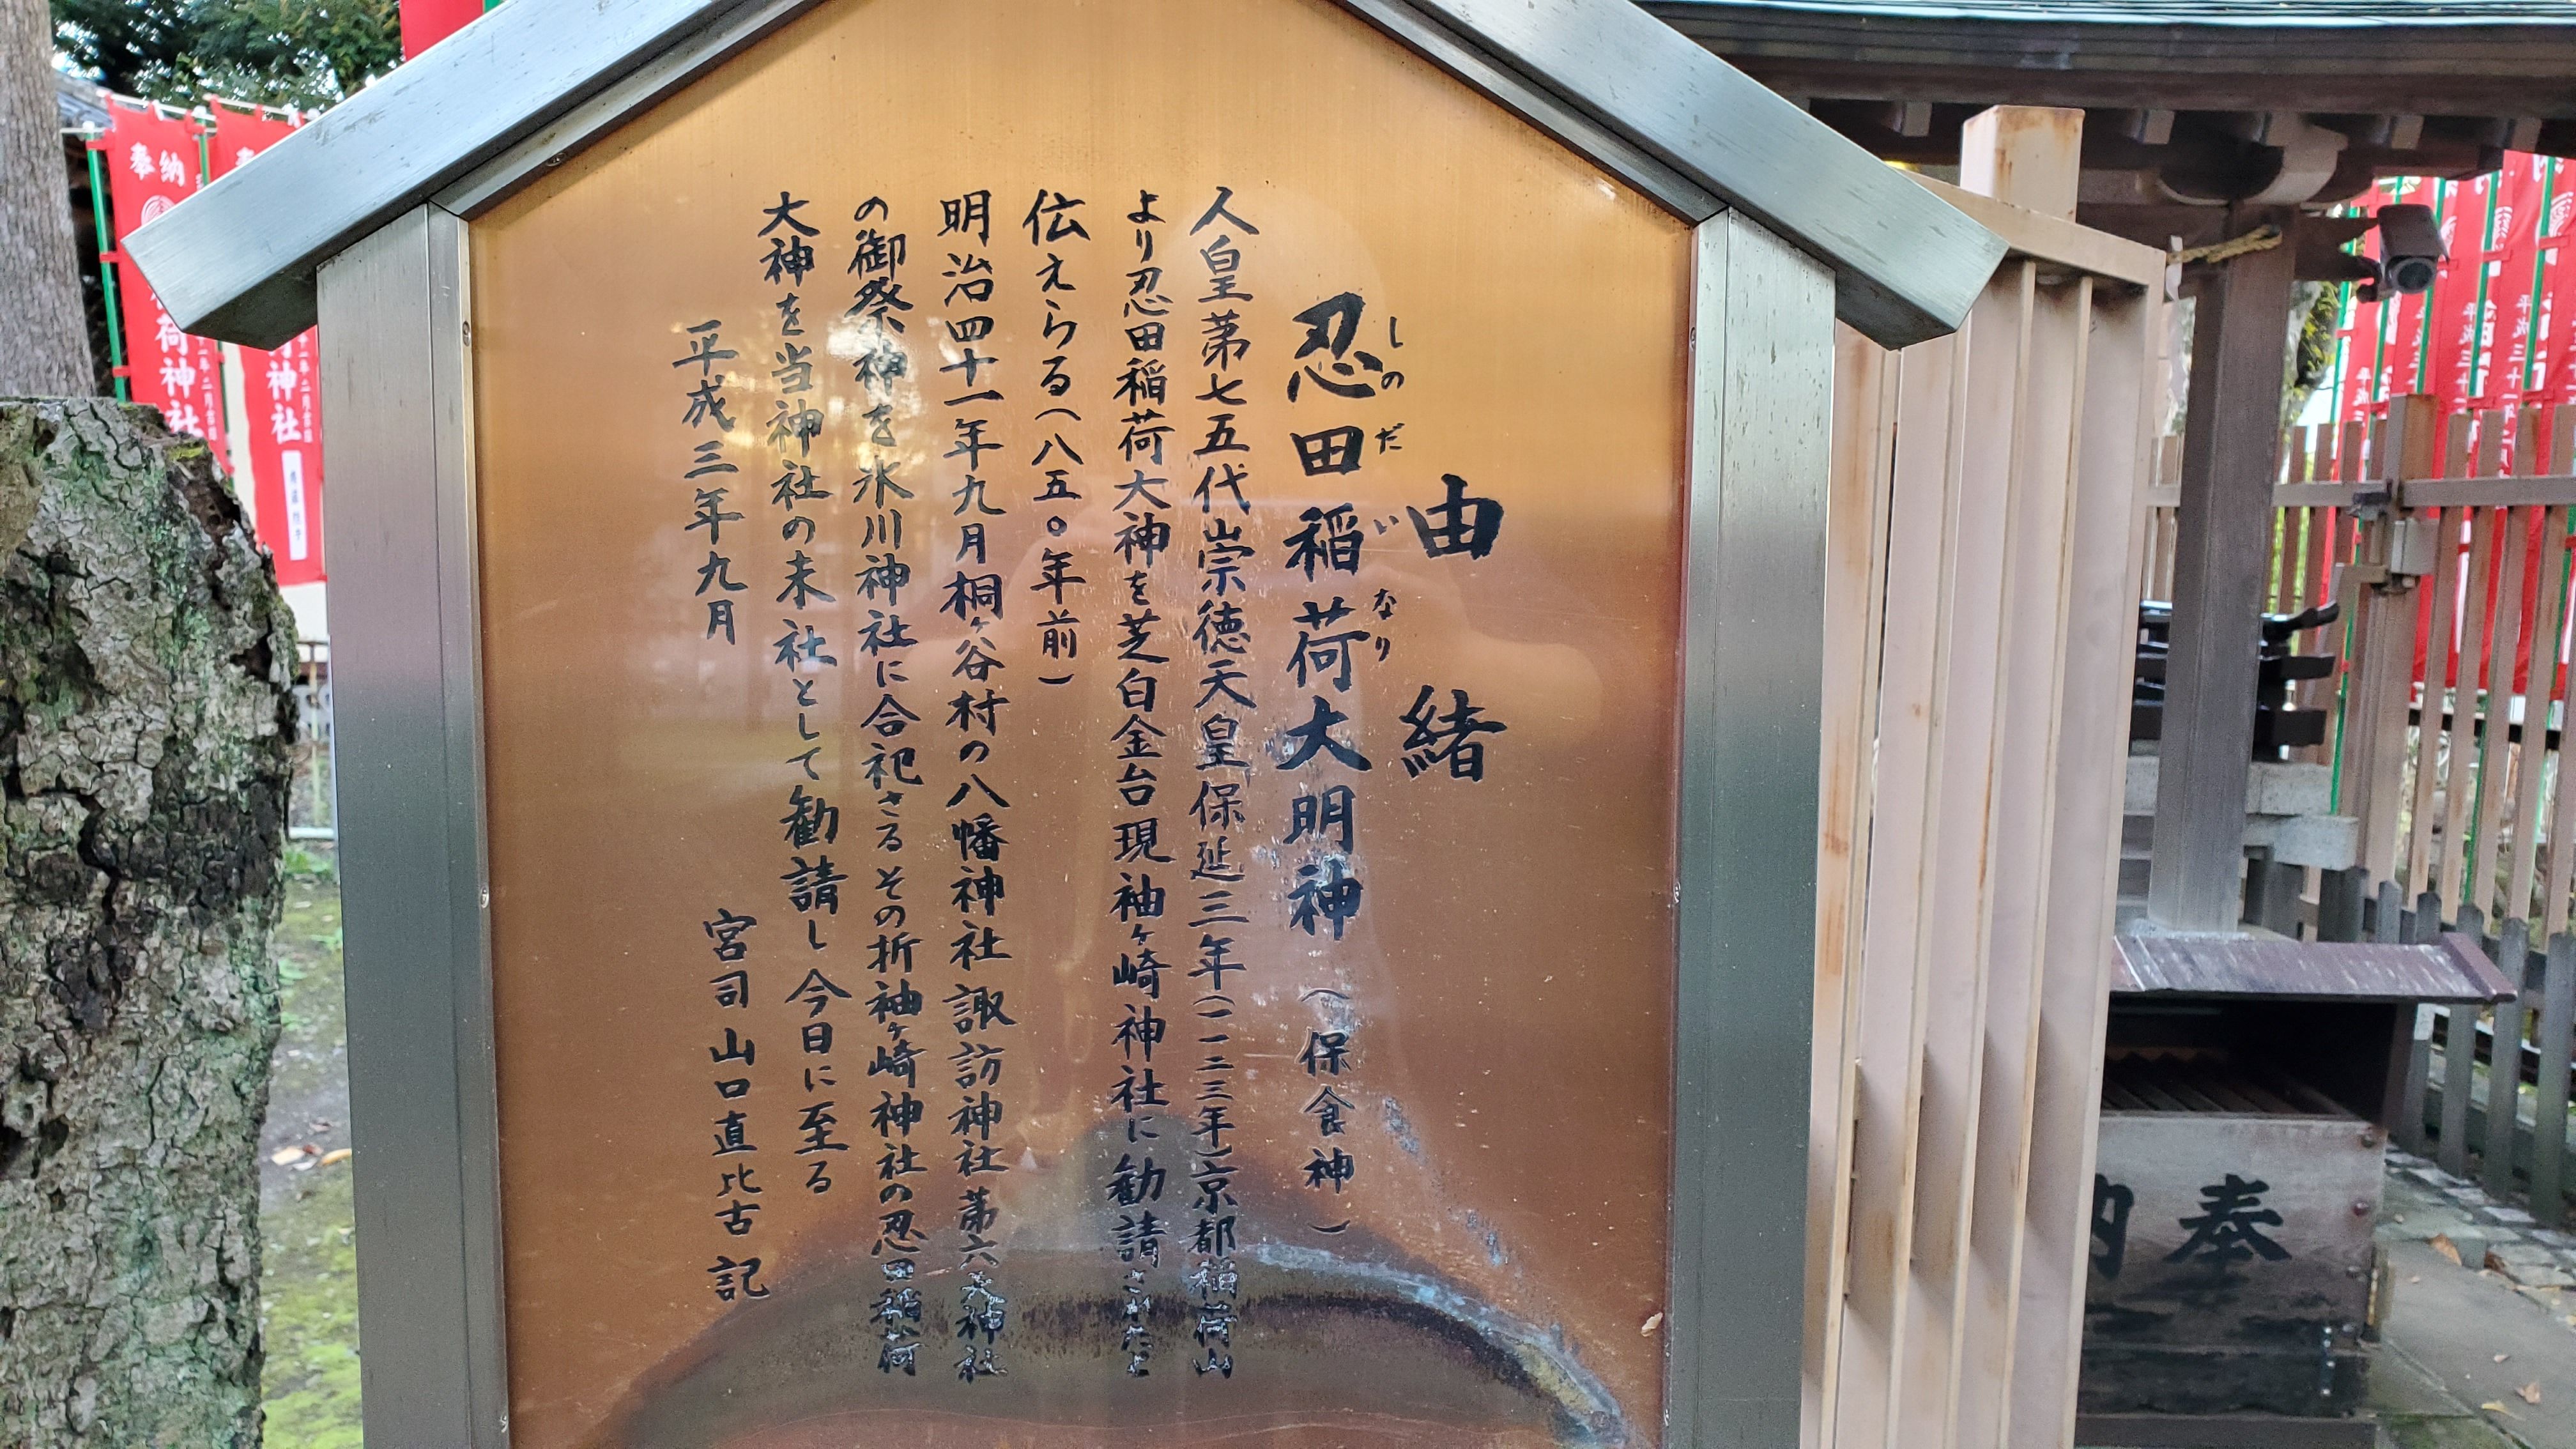 由緒
忍田稲荷大明神（保食神）
しのだいなり
人皇第七五代崇徳天皇保延三年（一一三三年）京都稲荷山
より忍田稲荷大神を芝白金台現袖ヶ崎神社に勧請されたと
伝えらる（八五〇年前）
明治四十一年九月桐ヶ谷村の八幡神社諏訪神社第六天神社
の御祭神を氷川神社に合祀さるその折袖ヶ崎神社の忍田稲荷
大神を当神社の末社として勧請し今日に至る
平成三年九月
宮司 山口直比古 記
奉納
荷神社
神社
奉納